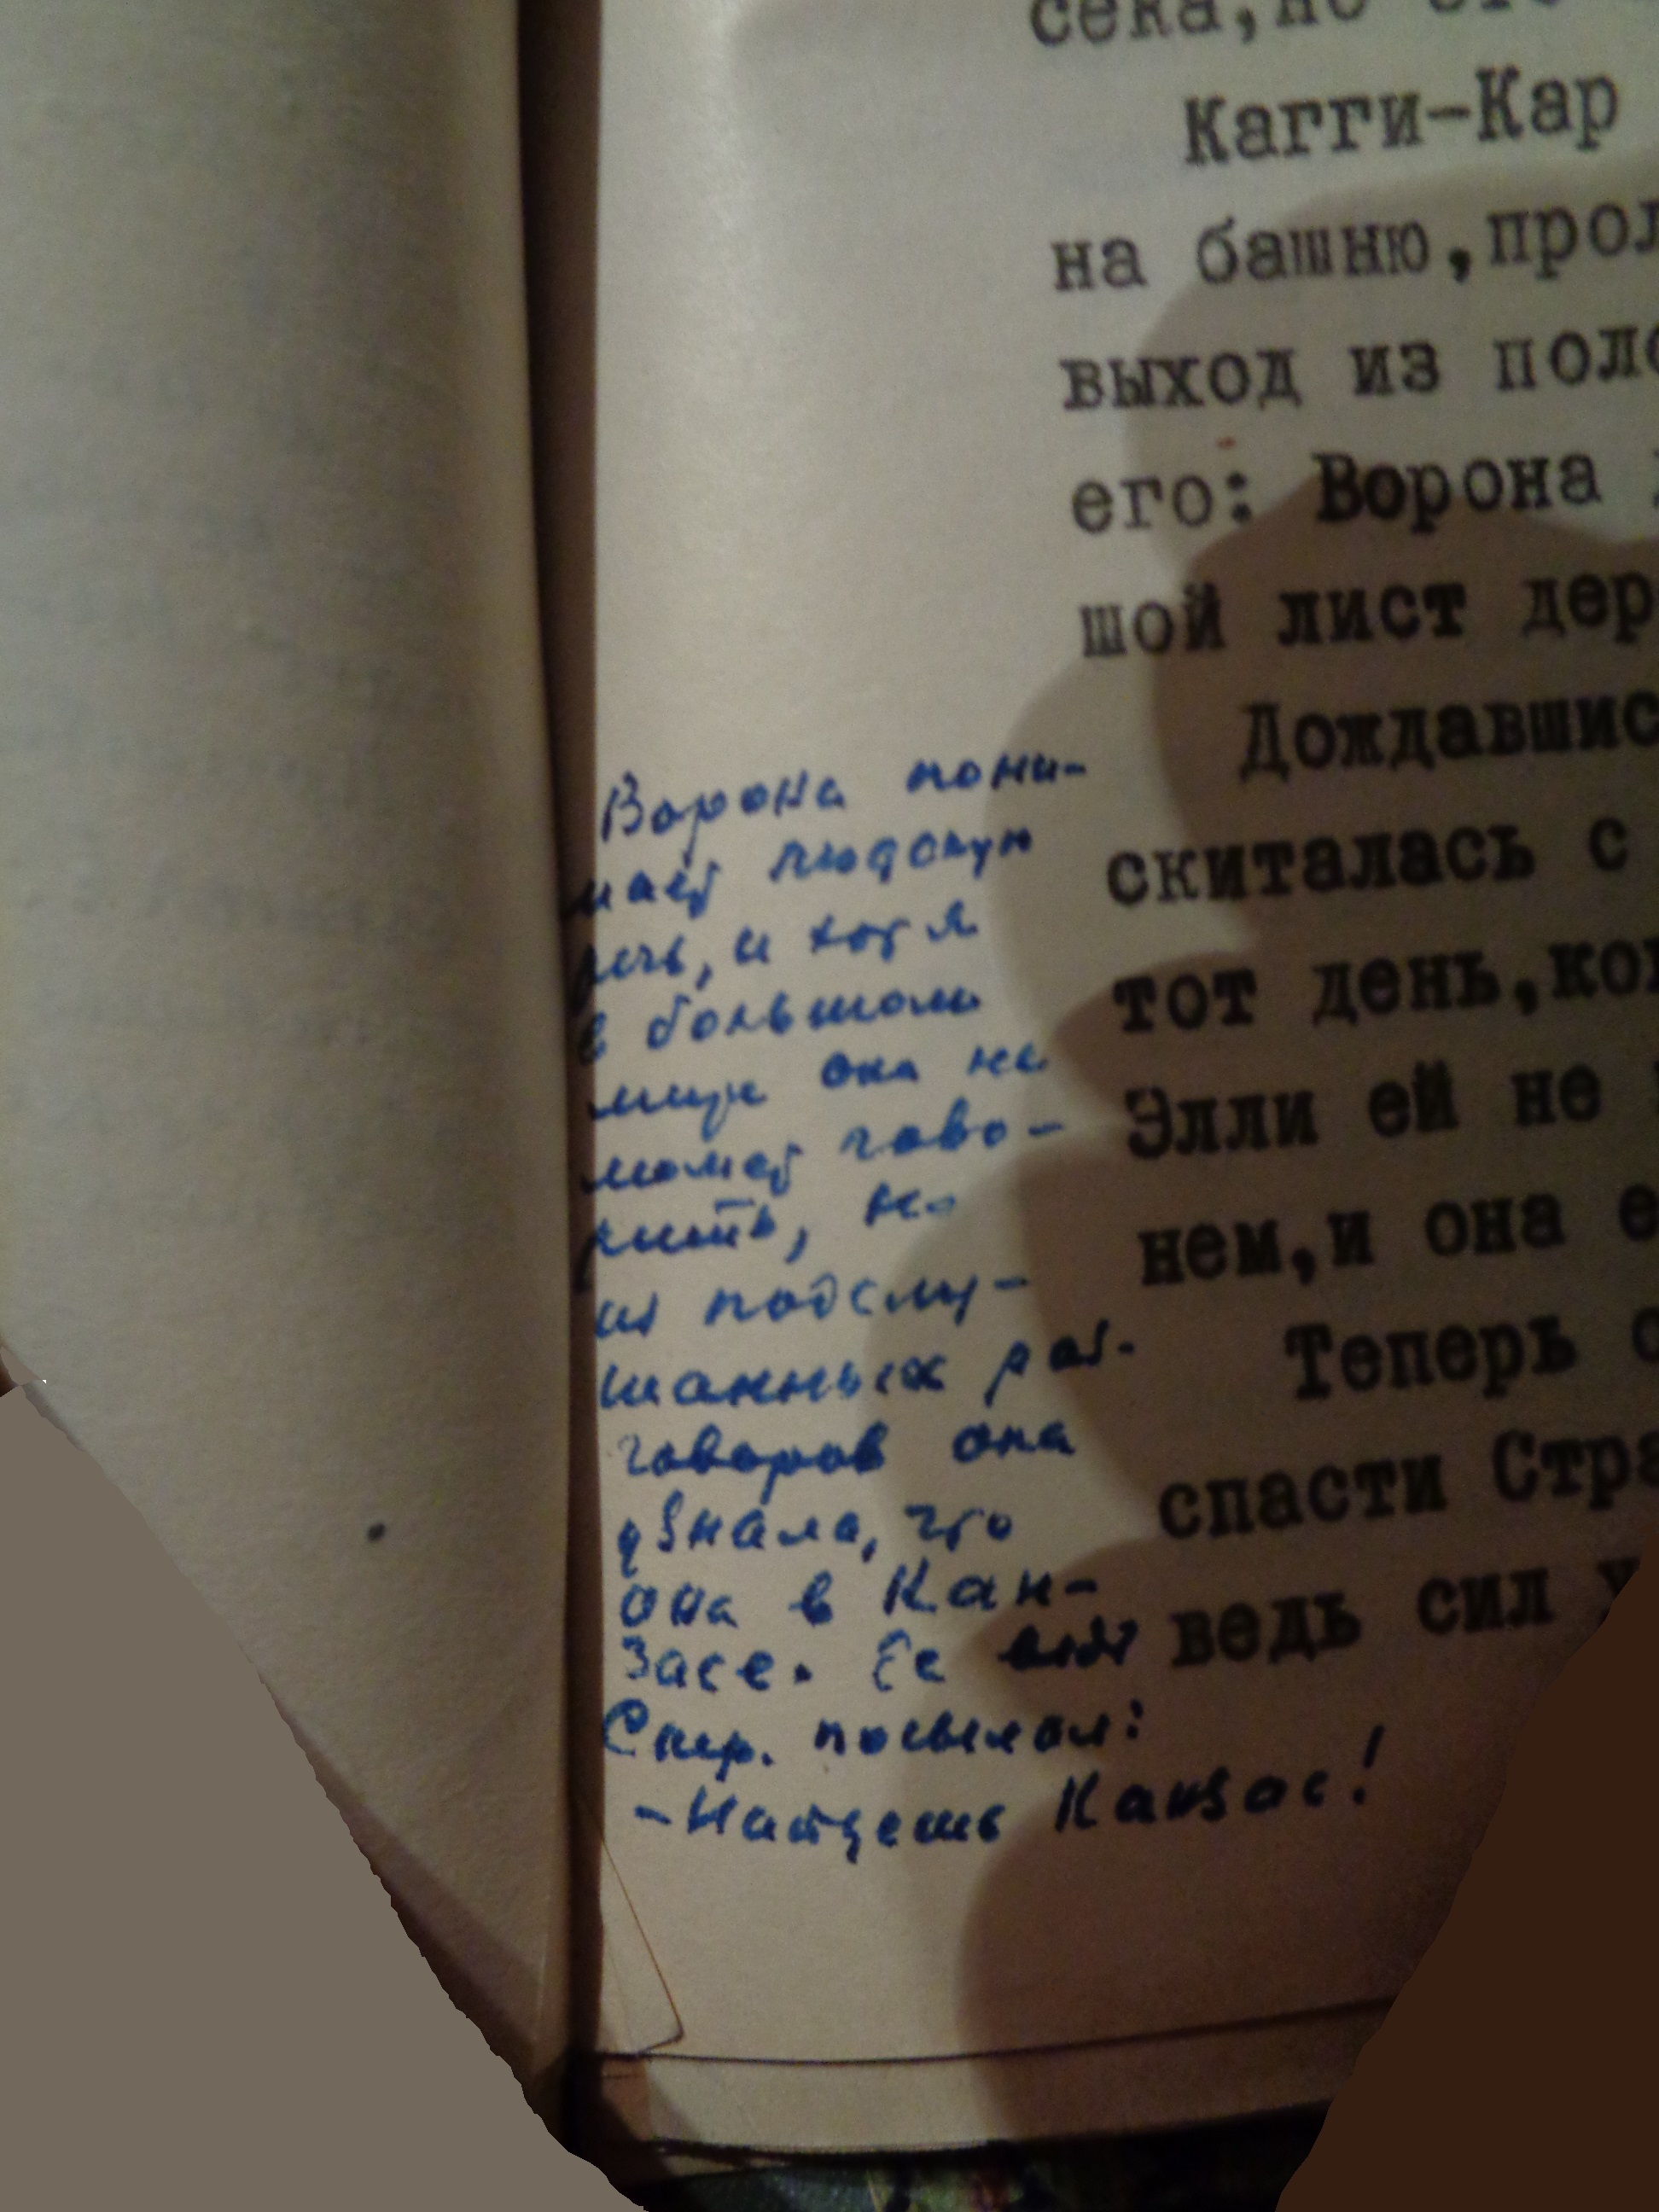 сека, но
Кагги-Кар
на башню, прол
выход из поло
его: Ворона
шой лист дер
Дождавшис
скиталась с
тот день, ког
Элли ей не
нем, и она е
Теперь
спасти Стра
ведь сил у
Ворона пони-
мает людскую
речь, и хотя
в большом
мире она не
может гово-
рить, но
из подслу-
шанных раз-
говоров она
узнала, что
она в Кан-
засе. Ее
Стр. посылал:
- Найдешь Канзас!